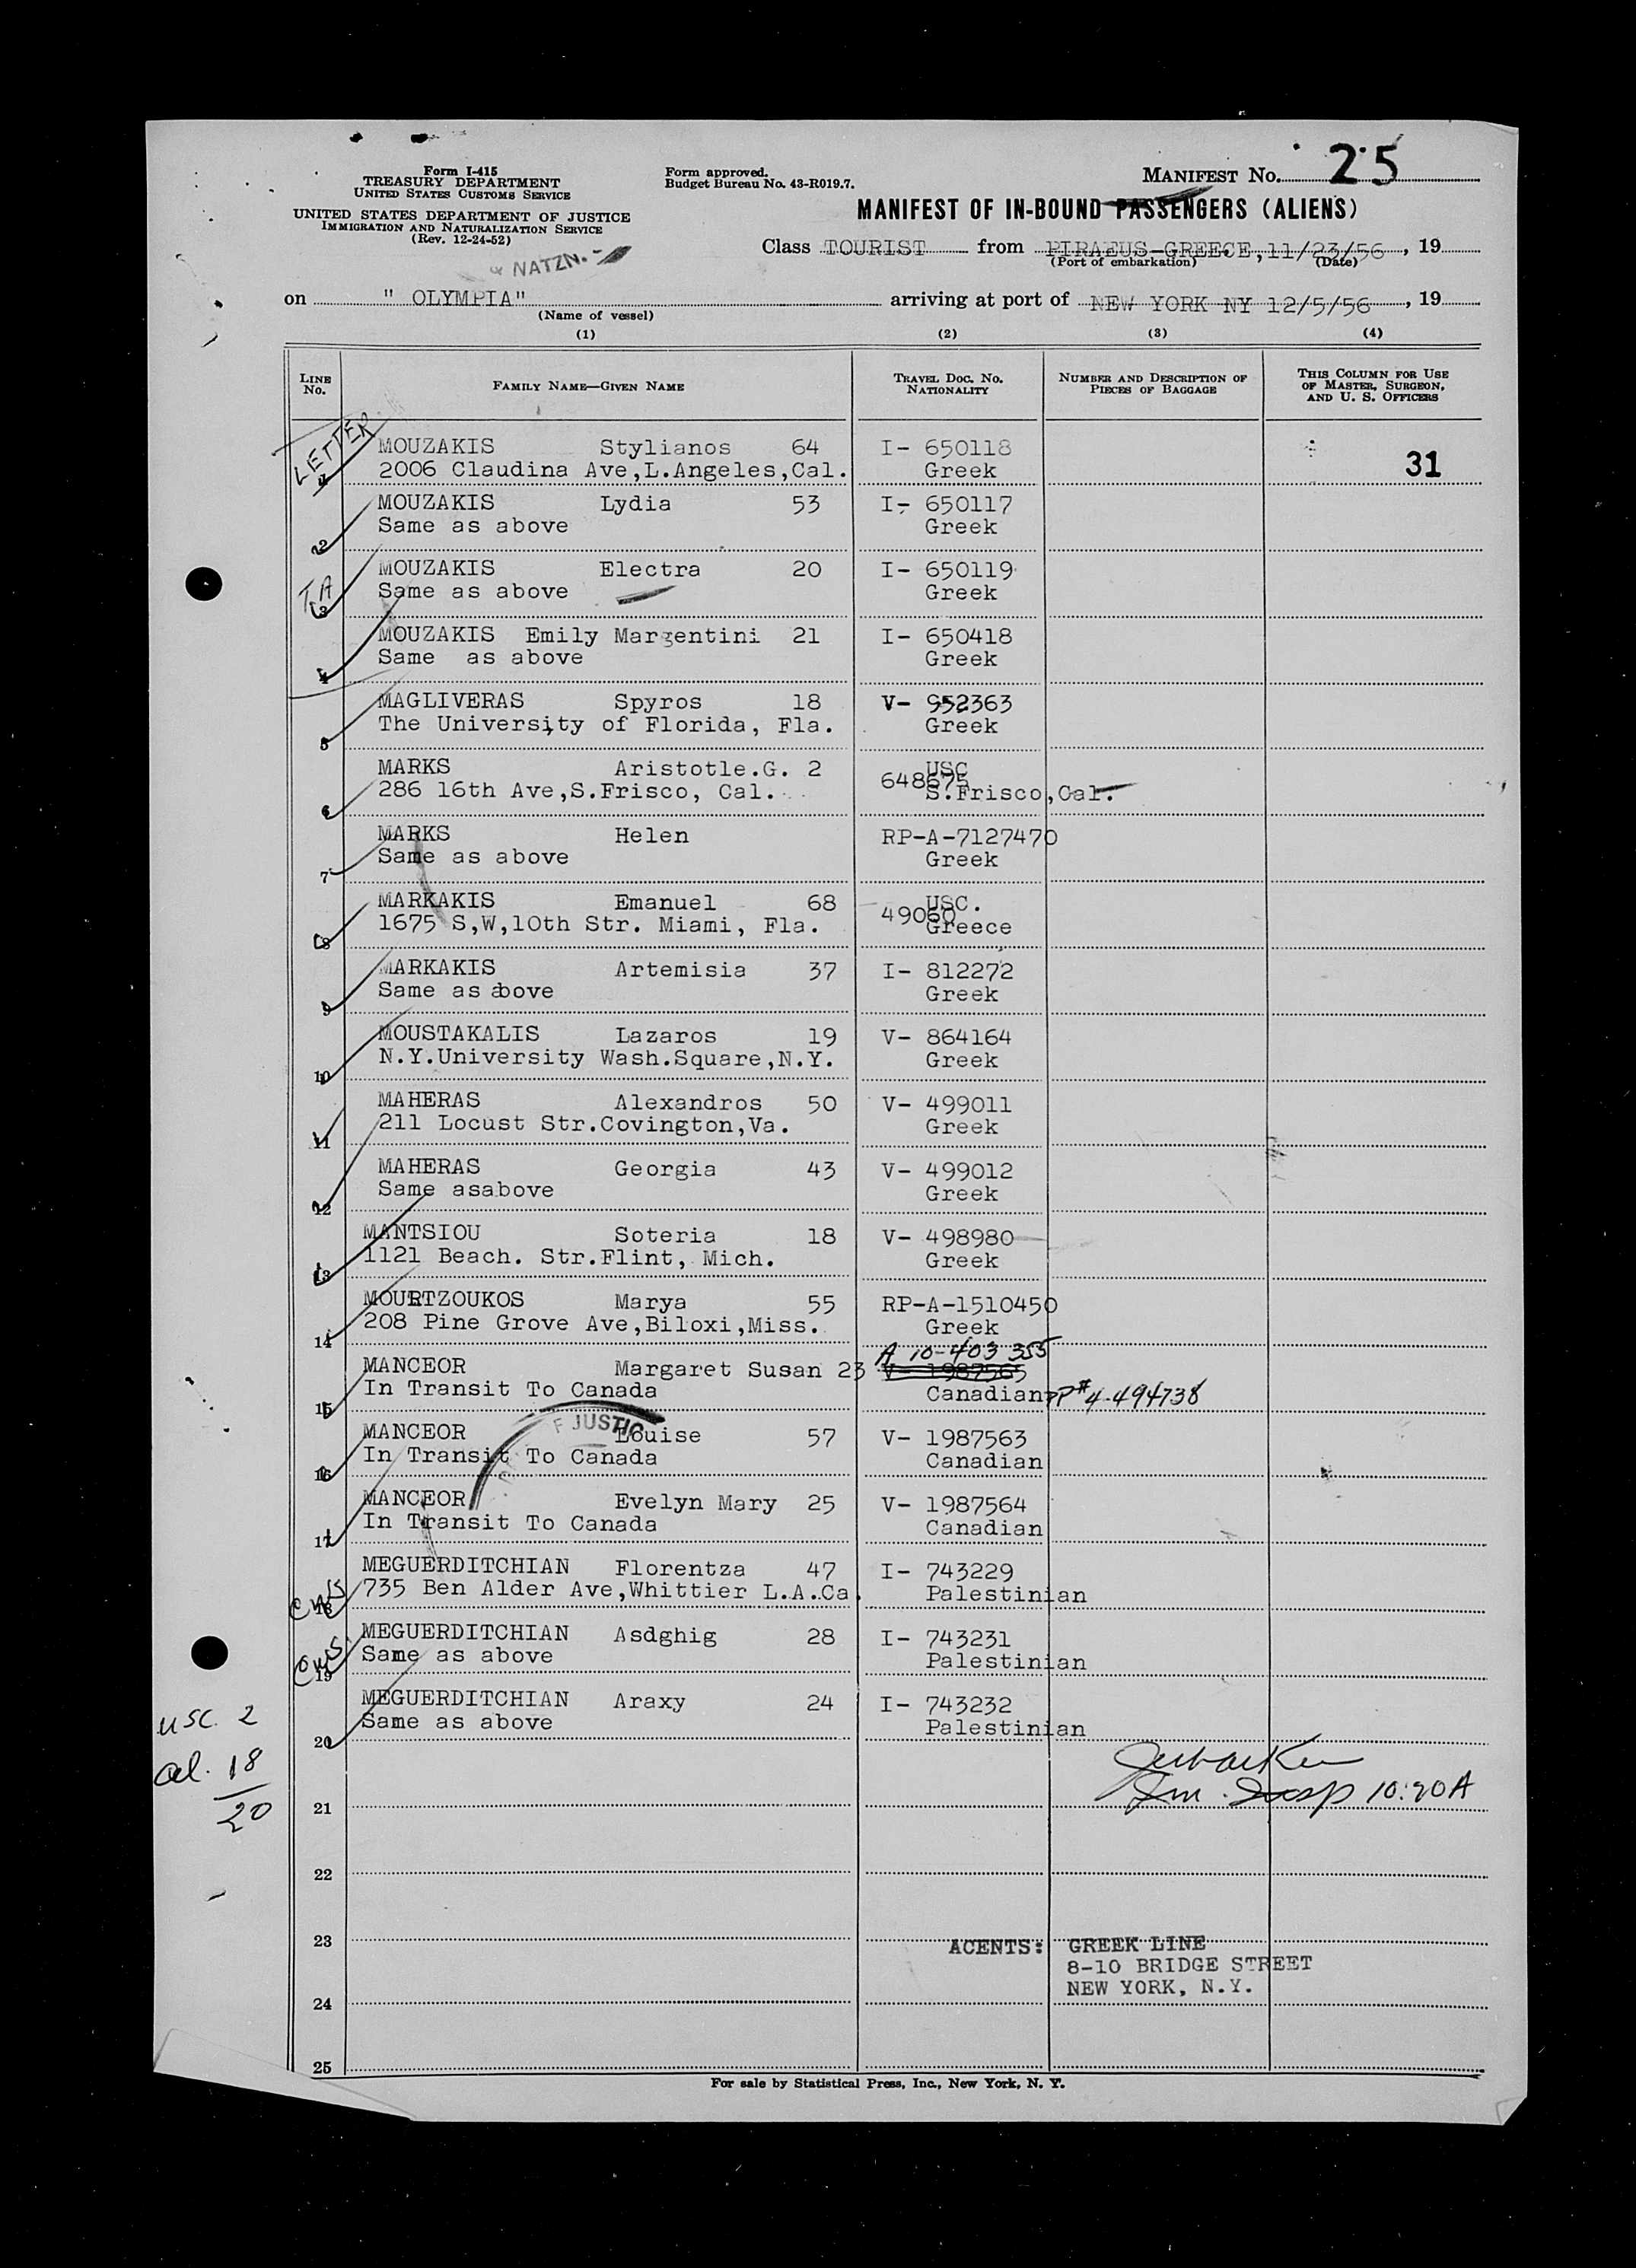 Form I-415
TREASURY DEPARTMENT
UNITED STATES CUSTOMS SERVICE
UNITED STATES DEPARTMENT OF JUSTICE
IMMIGRATION AND NATURALIZATION SERVICE
(Rev. 12-24-52)
Form approved.
Budget Bureau No. 43-R019.7.
MANIFEST No. 25
MANIFEST OF IN-BOUND PASSENGERS (ALIENS)
Class TOURIST from PIRAEUS-GREECE, 11/23/56, 19
(Port of embarkation) (Date)
& NATZN.
on " OLYMPIA" arriving at port of NEW YORK NY 12/5/56, 19
(Name of vessel)
(1) (2) (3) (4)
LINE No. FAMILY NAME—GIVEN NAME TRAVEL DOC. No. NATIONALITY NUMBER AND DESCRIPTION OF PIECES OF BAGGAGE THIS COLUMN FOR USE OF MASTER, SURGEON, AND U. S. OFFICERS
LETTER
MOUZAKIS Stylianos 64 I- 650118
1 2006 Claudina Ave,L.Angeles,Cal. Greek 31
MOUZAKIS Lydia 53 I- 650117
2 Same as above Greek
T.A
MOUZAKIS Electra 20 I- 650119
3 Same as above Greek
MOUZAKIS Emily Margentini 21 I- 650418
4 Same as above Greek
MAGLIVERAS Spyros 18 V- 952363
5 The University of Florida, Fla. Greek
MARKS Aristotle.G. 2 648675 USC
6 286 16th Ave,S.Frisco, Cal. S.Frisco,Cal.
MARKS Helen RP-A-7127470
7 Same as above Greek
MARKAKIS Emanuel 68 49060 USC.
8 1675 S,W,10th Str. Miami, Fla. Greece
MARKAKIS Artemisia 37 I- 812272
9 Same as above Greek
MOUSTAKALIS Lazaros 19 V- 864164
10 N.Y.University Wash.Square,N.Y. Greek
MAHERAS Alexandros 50 V- 499011
11 211 Locust Str.Covington,Va. Greek
MAHERAS Georgia 43 V- 499012
12 Same asabove Greek
MANTSIOU Soteria 18 V- 498980
13 1121 Beach. Str.Flint, Mich. Greek
MOURTZOUKOS Marya 55 RP-A-1510450
14 208 Pine Grove Ave,Biloxi,Miss. Greek
A 10-403 355
MANCEOR Margaret Susan 23 V- 1987565
15 In Transit To Canada Canadian PP# 4-494738
F JUSTIC
MANCEOR Louise 57 V- 1987563
16 In Transit To Canada Canadian
MANCEOR Evelyn Mary 25 V- 1987564
17 In Transit To Canada Canadian
MEGUERDITCHIAN Florentza 47 I- 743229
18 735 Ben Alder Ave,Whittier L.A.Ca. Palestinian
MEGUERDITCHIAN Asdghig 28 I- 743231
19 Same as above Palestinian
MEGUERDITCHIAN Araxy 24 I- 743232
20 Same as above Palestinian
usc. 2
al. 18
20
Im. Insp 10:20A
21
22
23
AGENTS: GREEK LINE
8-10 BRIDGE STREET
NEW YORK, N.Y.
24
25
For sale by Statistical Press, Inc., New York, N. Y.